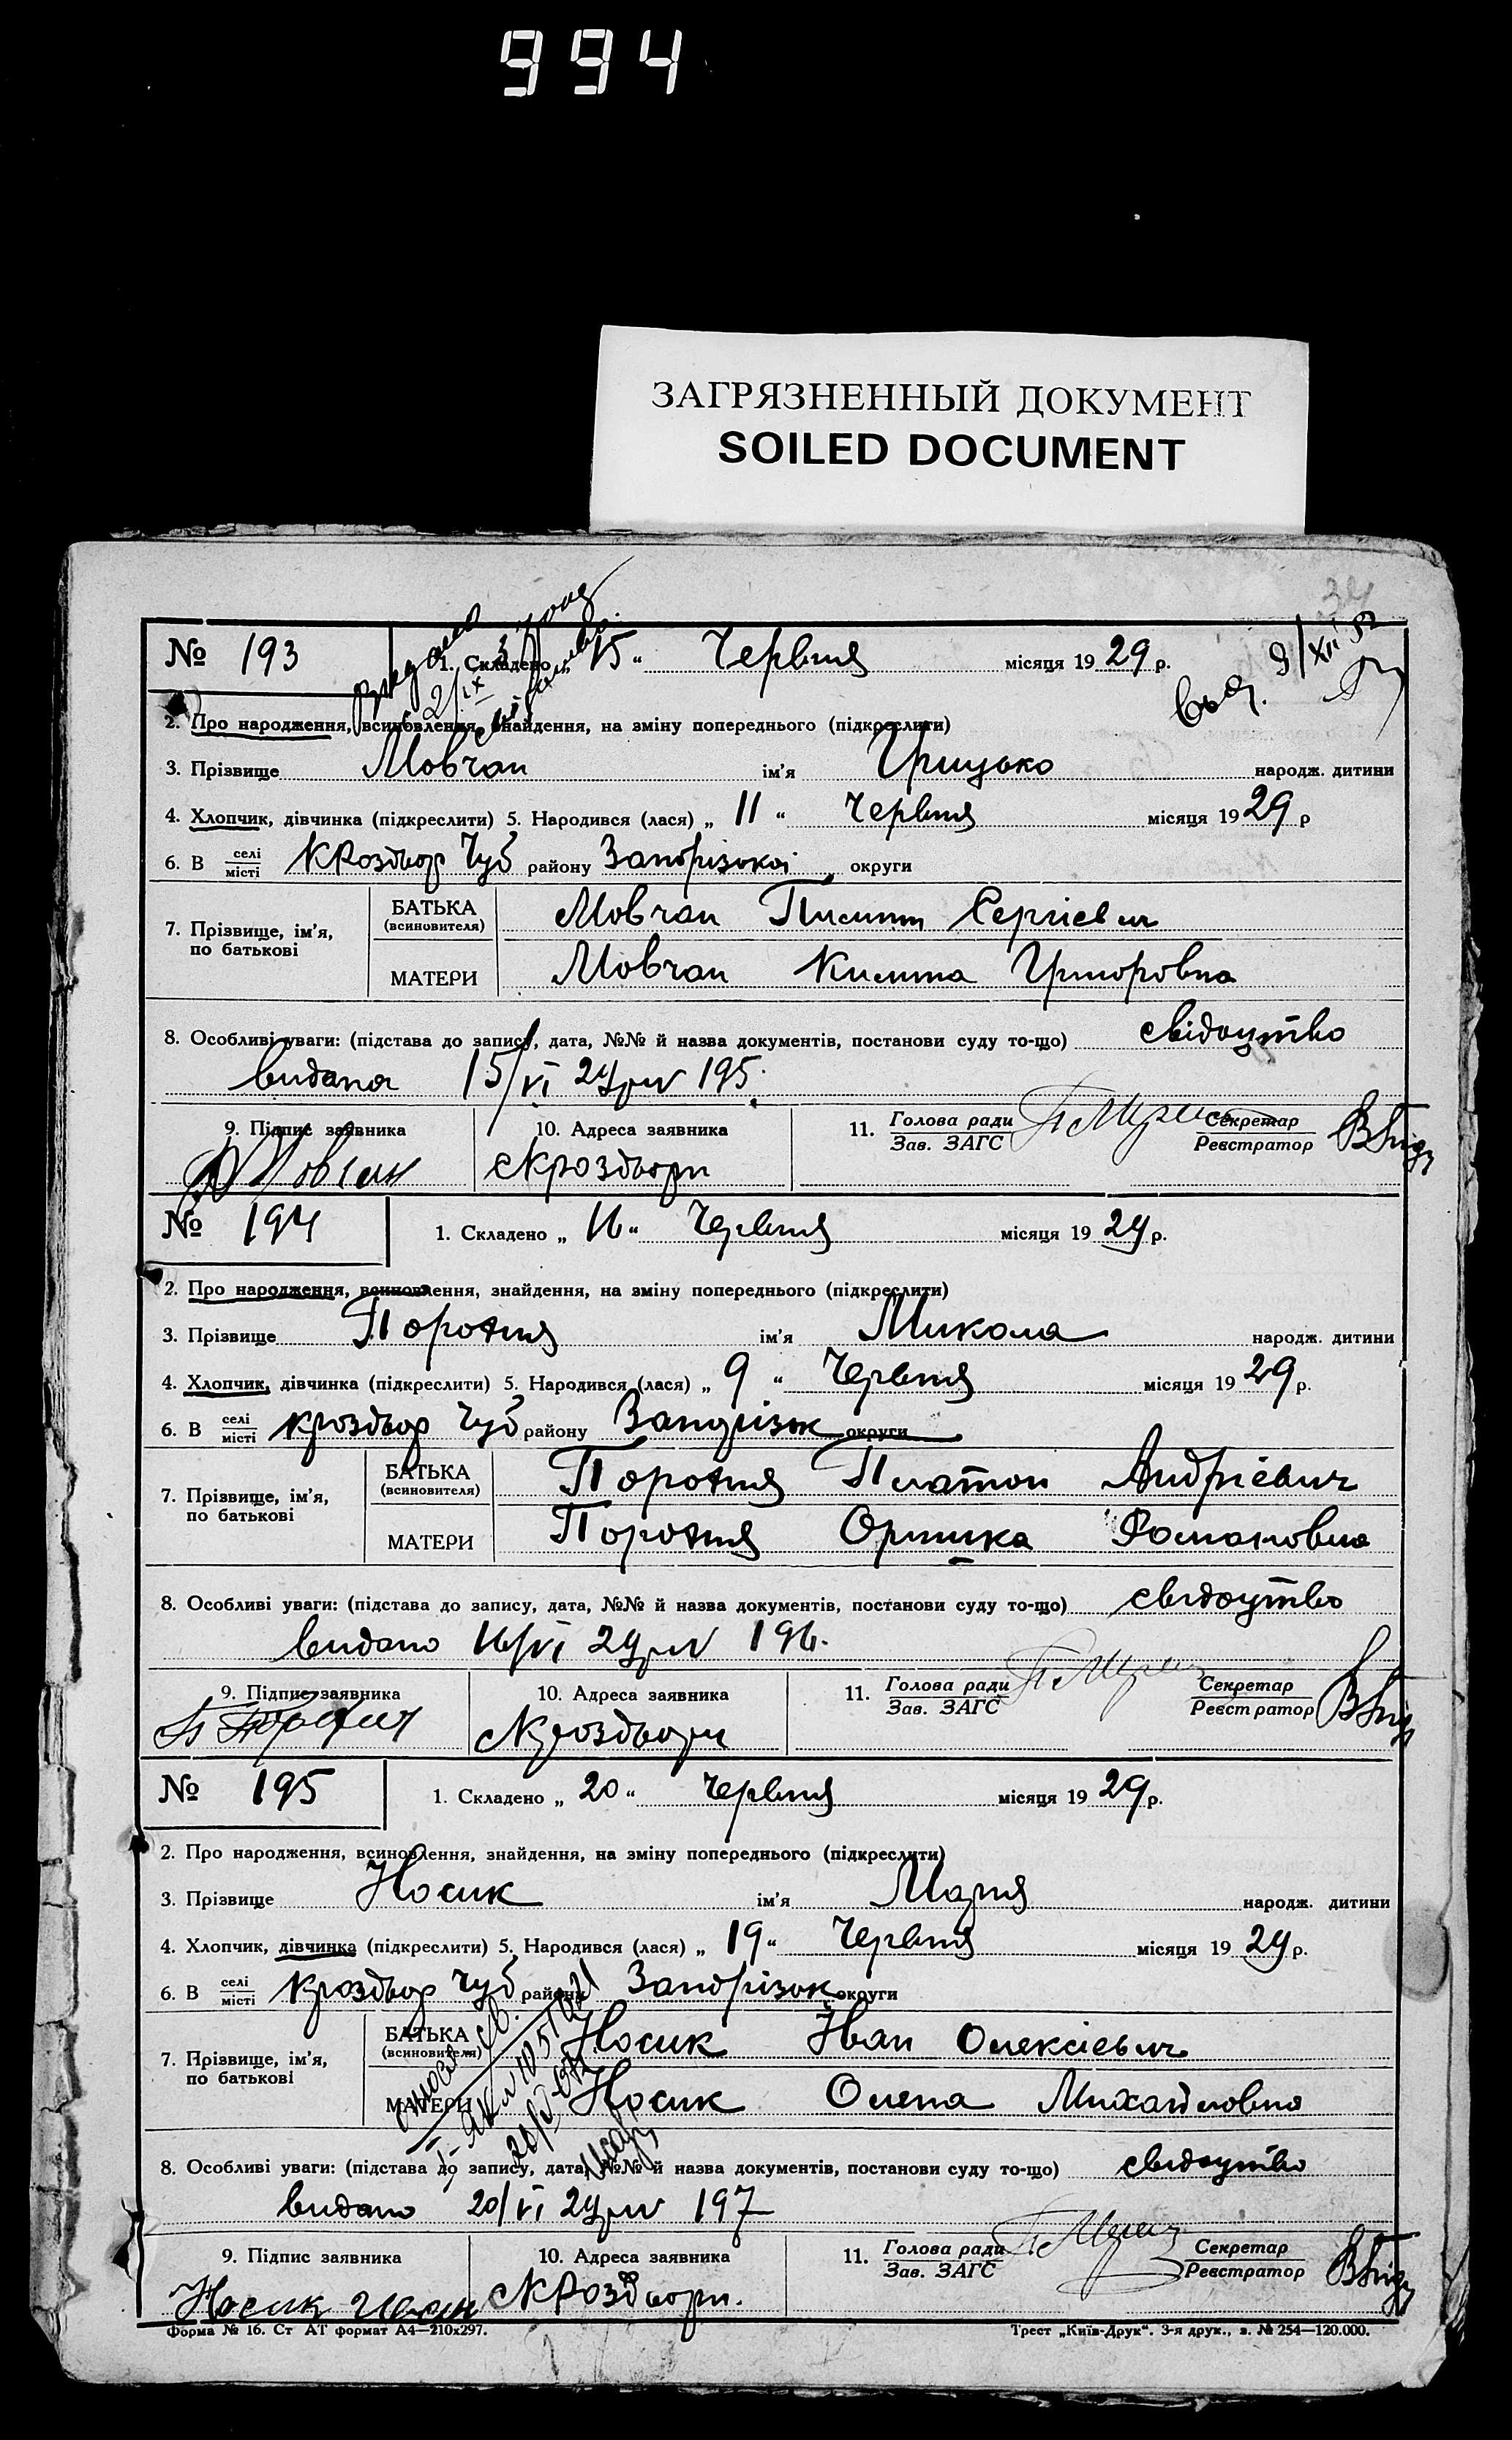 994
ЗАГРЯЗНЕННЫЙ ДОКУМЕНТ
SOILED DOCUMENT
№ 193 1. Складено „ 15 “ Червня місяця 19 29 р.
9/XII 52
2. Про народження, всиновлення, знайдення, на зміну попереднього (підкреслити)
3. Прізвище Мовчан ім’я Грицько народж. дитини
4. Хлопчик, дівчинка (підкреслити) 5. Народився (лася) „ 11 “ Червня місяця 19 29 р
6. В селі/місті Кроздвор Чуб району Запорізької округи
7. Прізвище, ім’я, по батькові
БАТЬКА (всиновителя) Мовчан Сергієвич
МАТЕРИ Мовчан Килина Григоровна
8. Особливі уваги: (підстава до запису, дата, №№ й назва документів, постанови суду то-що) свідоцтво
видана 15/VI 29 р № 195.
9. Підпис заявника 10. Адреса заявника 11. Голова ради/Зав. ЗАГС Секретар/Реєстратор
Мовчан с Кроздвори
№ 194 1. Складено „ 16 “ Червня місяця 19 29 р.
2. Про народження, всиновлення, знайдення, на зміну попереднього (підкреслити)
3. Прізвище Поротня ім’я Микола народж. дитини
4. Хлопчик, дівчинка (підкреслити) 5. Народився (лася) „ 9 “ Червня місяця 19 29 р.
6. В селі/місті Кроздвор Чуб району Запорізьк округи
7. Прізвище, ім’я, по батькові
БАТЬКА (всиновителя) Поротня Платон Андрієвич
МАТЕРИ Поротня Оришка Романовна
8. Особливі уваги: (підстава до запису, дата, №№ й назва документів, постанови суду то-що) свідоцтво
видано 16/VI 29 р № 196.
9. Підпис заявника 10. Адреса заявника 11. Голова ради/Зав. ЗАГС Секретар/Реєстратор
П Поротня с Кроздвори
№ 195 1. Складено „ 20 “ Червня місяця 19 29 р.
2. Про народження, всиновлення, знайдення, на зміну попереднього (підкреслити)
3. Прізвище Носик ім’я Марія народж. дитини
4. Хлопчик, дівчинка (підкреслити) 5. Народився (лася) „ 19 “ Червня місяця 19 29 р.
6. В селі/місті Кроздвор Чуб району Запорізьк округи
7. Прізвище, ім’я, по батькові
БАТЬКА (всиновителя) Носик Іван Олексієвич
МАТЕРИ Носик Олена Михайловна
8. Особливі уваги: (підстава до запису, дата, №№ й назва документів, постанови суду то-що) свідоцтво
видано 20/VI 29 р № 197
9. Підпис заявника 10. Адреса заявника 11. Голова ради/Зав. ЗАГС Секретар/Реєстратор
Носик Иван с Кроздвори.
Форма № 16. Ст АТ формат А4—210х297. Трест „Київ-Друк“. 3-я друк., з. № 254—120.000.